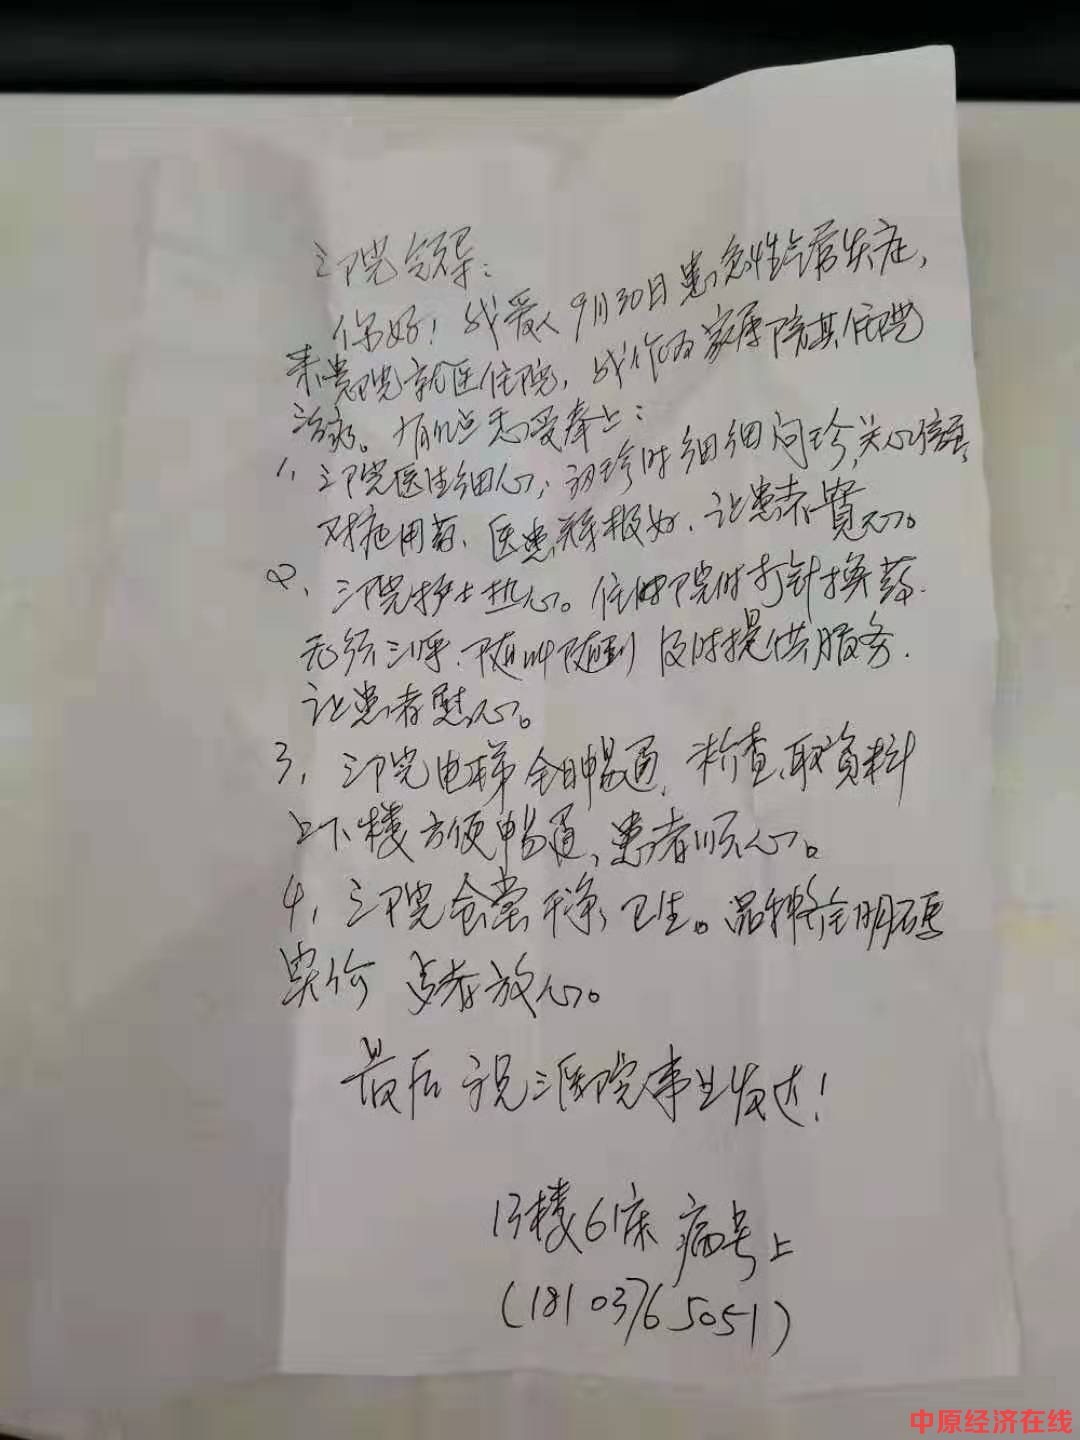 三院领导:
你好!我爱人9月30日患急性气管炎症,
来贵院就医住院,我作为家属陪其住院
治疗。有几点感受奉上:
1、三院医生细心,初珍时细细问珍,关心倍至,
对症用药、医患关系极好,让患者宽心。
2、三院护士热心。住院时打针换药.
无须三呼.随叫随到 及时提供服务.
让患者慰心。
3,三院电梯全日畅通,检查,取资料
上下楼方便畅通,患者顺心。
4,三院食堂干净,卫生。品种全明码
实价 患者放心。
最后 祝三医院事业发达!
13楼6床 病号上
(18103765051)
中原经济在线